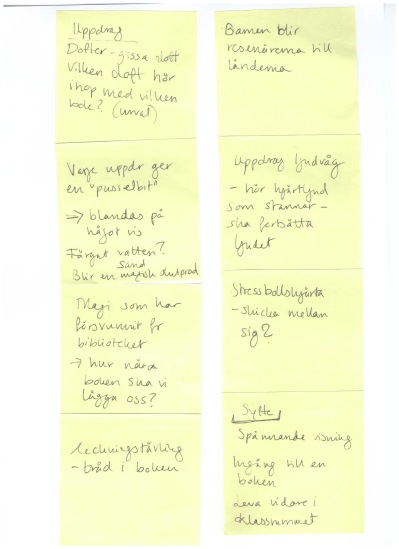 Uppdrag
Dofter - gissa doft
Vilken doft hör
ihop med vilken
bok? (urval)
Varje uppdr ger
en "pusselbit"
⇒ blandas på
något vis
Färgat vatten?
sand
Blir en magisk slutprod
Magi som har
försvunnit fr
biblioteket
→ hur nära
boken ska vi
lägga oss?
teckningstävling
- tråd i boken
Barnen blir
resenärerna till
länderna
Uppdrag ljudvåg
- hör hjärtljud
som stannar -
ska fortsätta
ljudet
Stressbollshjärta
- skicka mellan
sig?
Syfte
Spännande
Ingång till en
boken
Leva vidare i
klassrummet